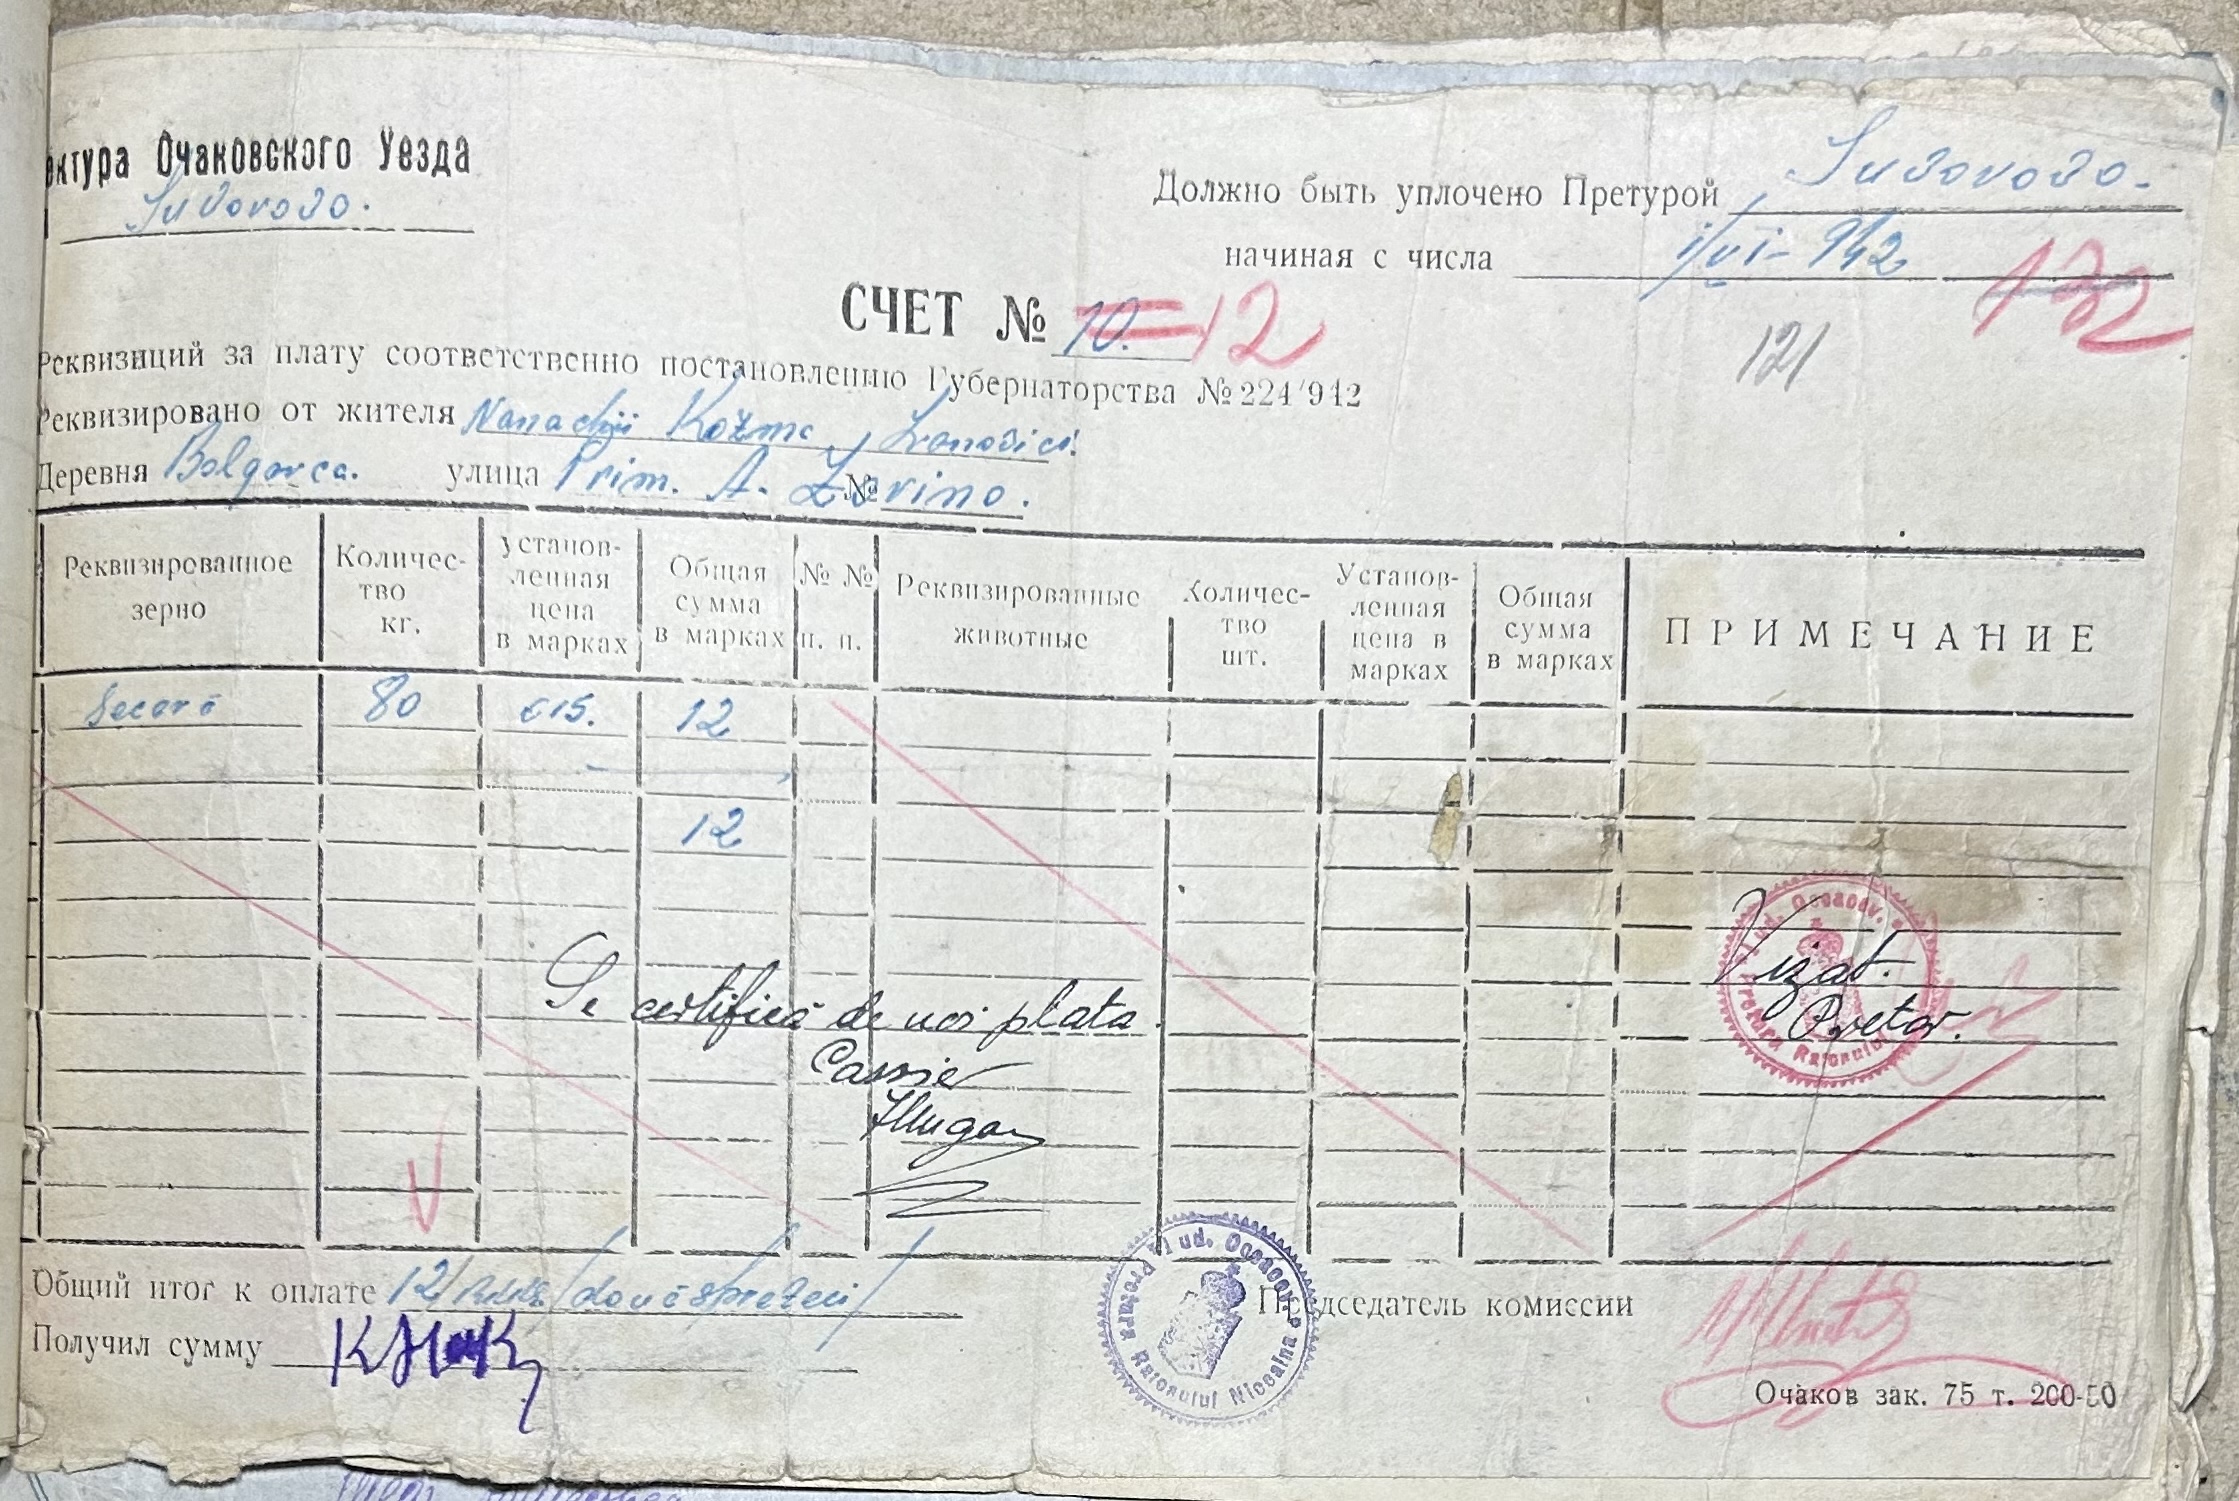 ектура Очаковского Уезда
Suvorovo.
Должно быть уплочено Претурой Suvorovo.
начиная с числа 1/VI-942
132
121
СЧЕТ № 10. 12
Реквизиций за плату соответственно постановлению Губернаторства № 224/942
Реквизировано от жителя Kozma
Деревня Bolgarca. улица Prim. A. №
Реквизированное зерно
Количество кг.
установленная цена в марках
Общая сумма в марках
№ № п. п.
Реквизированные животные
Количество шт.
Установленная цена в марках
Общая сумма в марках
ПРИМЕЧАНИЕ
Secară 80 12
12
Se certifică de noi plata
Cassier
Vizat.
Pretor.
Pretura Raionului jud. Oceacov
Общий итог к оплате 12/
Получил сумму
Pretura Raionului jud. Oceacov
Председатель комиссии
Очаков зак. 75 т. 200-50